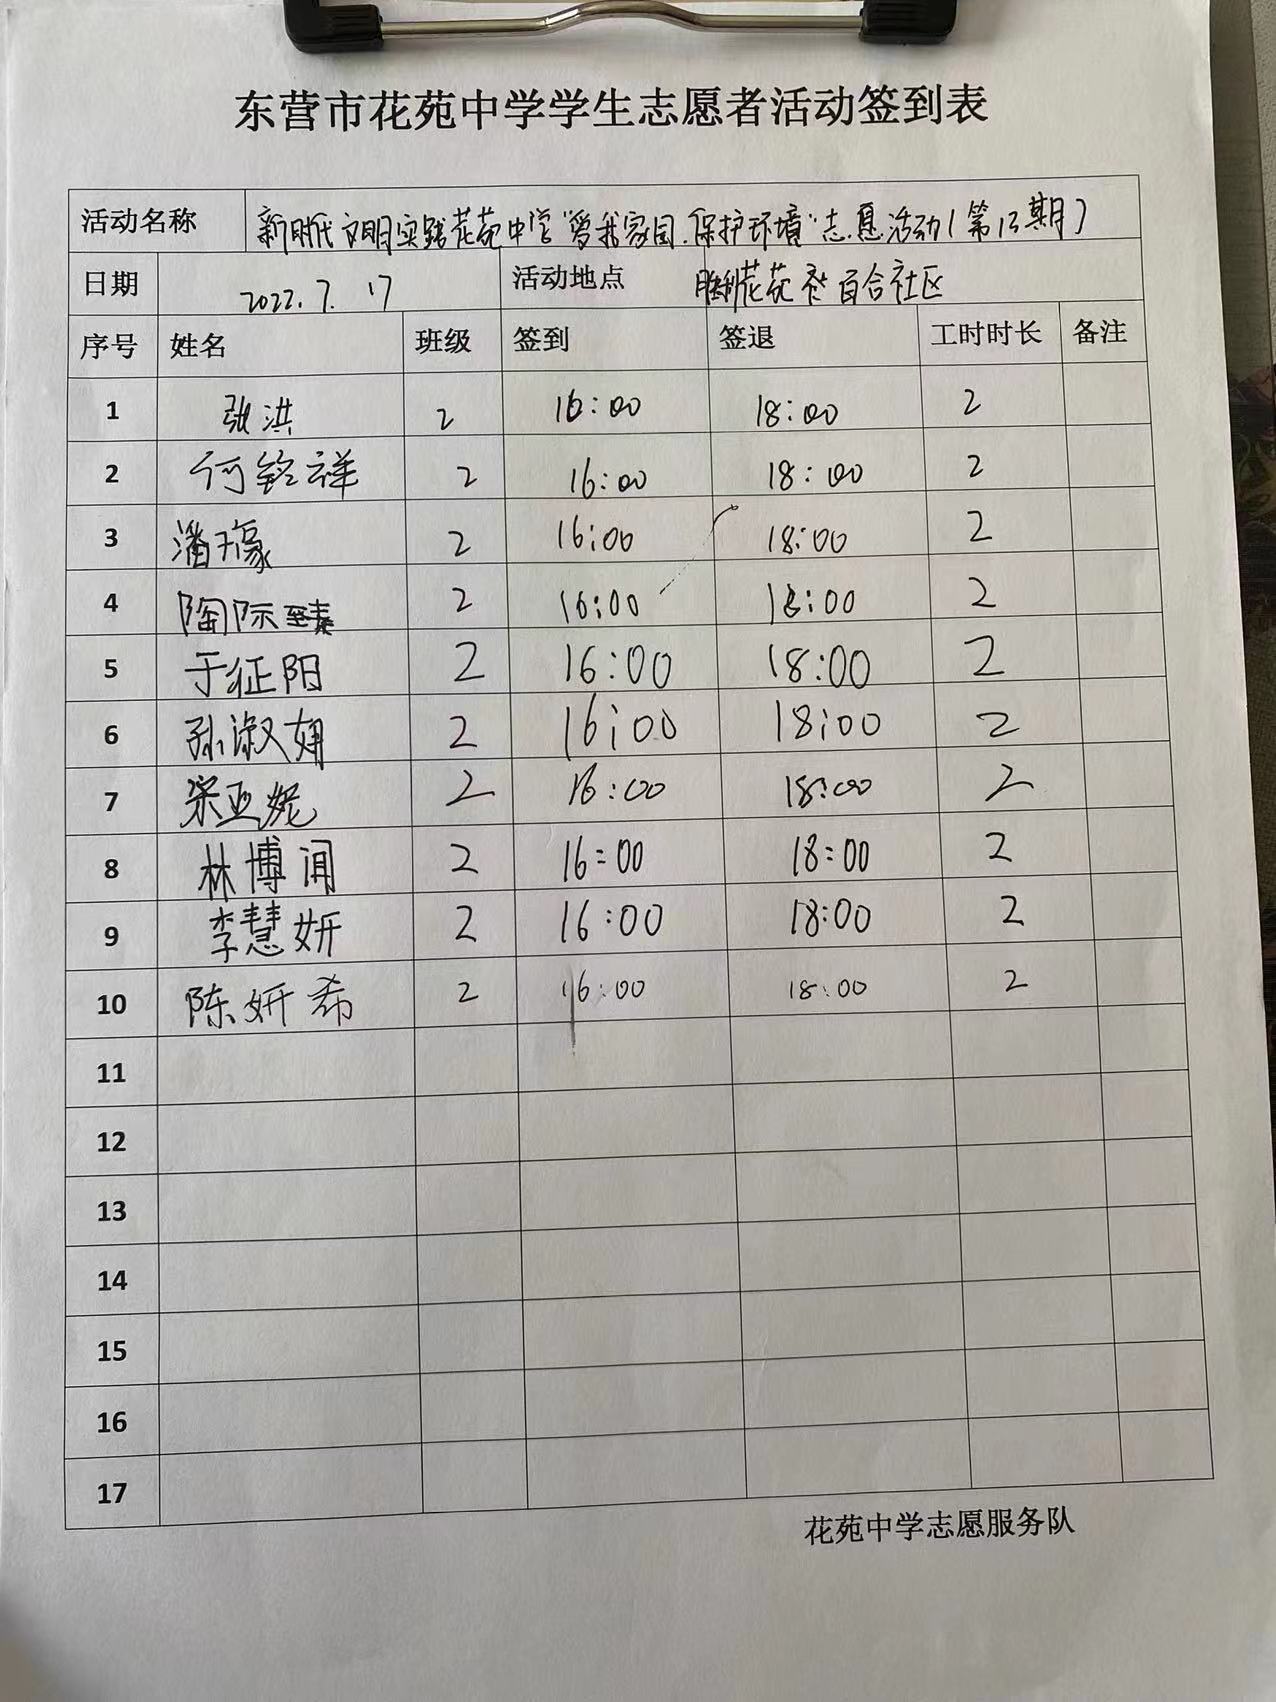 东营市花苑中学学生志愿者活动签到表
活动名称 新时代文明实践花苑中学"爱我家园.保护环境"志愿活动(第13期)
日期 2022.7.17 活动地点 胜利花苑 百合社区
序号 姓名 班级 签到 签退 工时时长 备注
1 张洪 2 16:00 18:00 2
2 何铭祥 2 16:00 18:00 2
3 潘子豪 2 16:00 18:00 2
4 陶际臻 2 16:00 18:00 2
5 于征阳 2 16:00 18:00 2
6 孙淑娴 2 16:00 18:00 2
7 宋亚妮 2 16:00 18:00 2
8 林博闻 2 16:00 18:00 2
9 李慧妍 2 16:00 18:00 2
10 陈妍希 2 16:00 18:00 2
11
12
13
14
15
16
17
花苑中学志愿服务队